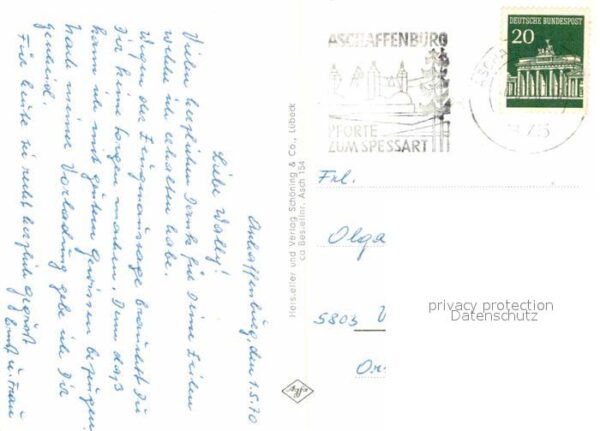 Aschaffenburg, den 1.5.70
Liebe Wally!
Vielen herzlichen Dank für Deine Zeilen
welche ich erhalten habe.
Wegen der Zeugenaussage brauchst Du
Dir keine Sorgen machen. Denn das
kann ich mit gutem Gewissen bezeugen.
Nach meiner Vorladung gebe ich Dir
Für heute sei recht herzlich gegrüßt
Ernst u. Frau
Hersteller und Verlag Schöning & Co., Lübeck
Bestellnr. Asch 154
Agfa
ASCHAFFENBURG
PFORTE
ZUM SPESSART
DEUTSCHE BUNDESPOST
20
Frl.
Olga
5803 V
privacy protection
Datenschutz